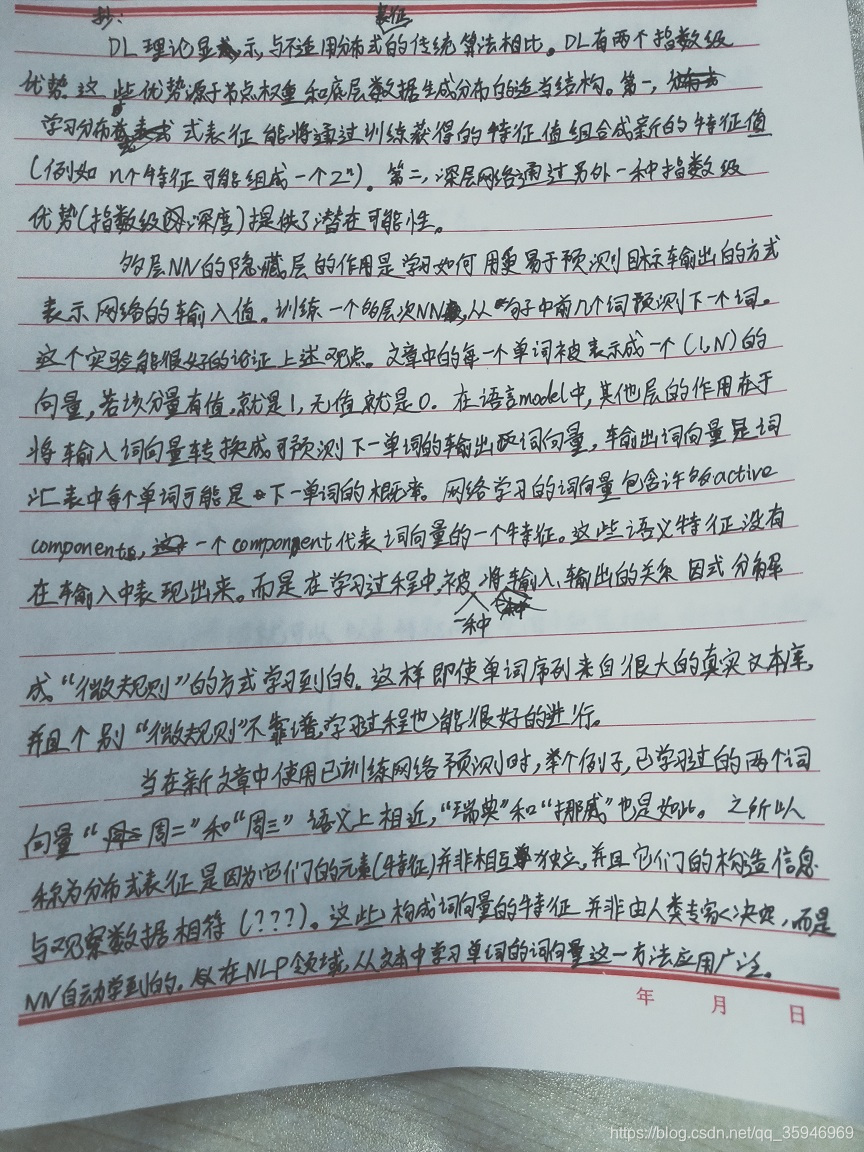 抄：
表征
DL理论显示，与不适用分布式的传统算法相比。DL有两个指数级
优势。这些优势源于节点权重和底层数据生成分布的适当结构。第一，
学习分布式表征能将通过训练获得的特征值组合成新的特征值
(例如n个特征可能组成一个2ⁿ)。第二，深层网络通过另外一种指数级
优势(指数级深度)提供了潜在可能性。
多层NN的隐藏层的作用是学习如何用更易于预测目标输出的方式
表示网络的输入值。训练一个多层次NN，从句子中前几个词预测下一个词。
这个实验能很好的论证上述观点。文章中的每一个单词被表示成一个(1,N)的
向量，若该分量有值，就是1，无值就是0。在语言model中，其他层的作用在于
将输入词向量转换成可预测下一单词的输出词向量，输出词向量是词
汇表中每个单词可能是下一单词的概率。网络学习的词向量包含许多active
components，一个component代表词向量的一个特征。这些语义特征没有
在输入中表现出来。而是在学习过程中，被将输入、输出的关系因式分解
一种
成“微规则”的方式学习到的。这样即使单词序列来自很大的真实文本库，
并且个别“微规则”不靠谱，学习过程也能很好的进行。
当在新文章中使用已训练网络预测时，举个例子，已学习过的两个词
向量“周二”和“周三”语义上相近，“瑞典”和“挪威”也是如此。之所以
称为分布式表征是因为它们的元素(特征)并非相互独立，并且它们的构造信息
与观察数据相符(???)。这些构成词向量的特征并非由人类专家决定，而是
NN自动学到的。从在NLP领域，从文本中学习单词的词向量这一方法应用广泛。
年 月 日
https://blog.csdn.net/qq_35946969